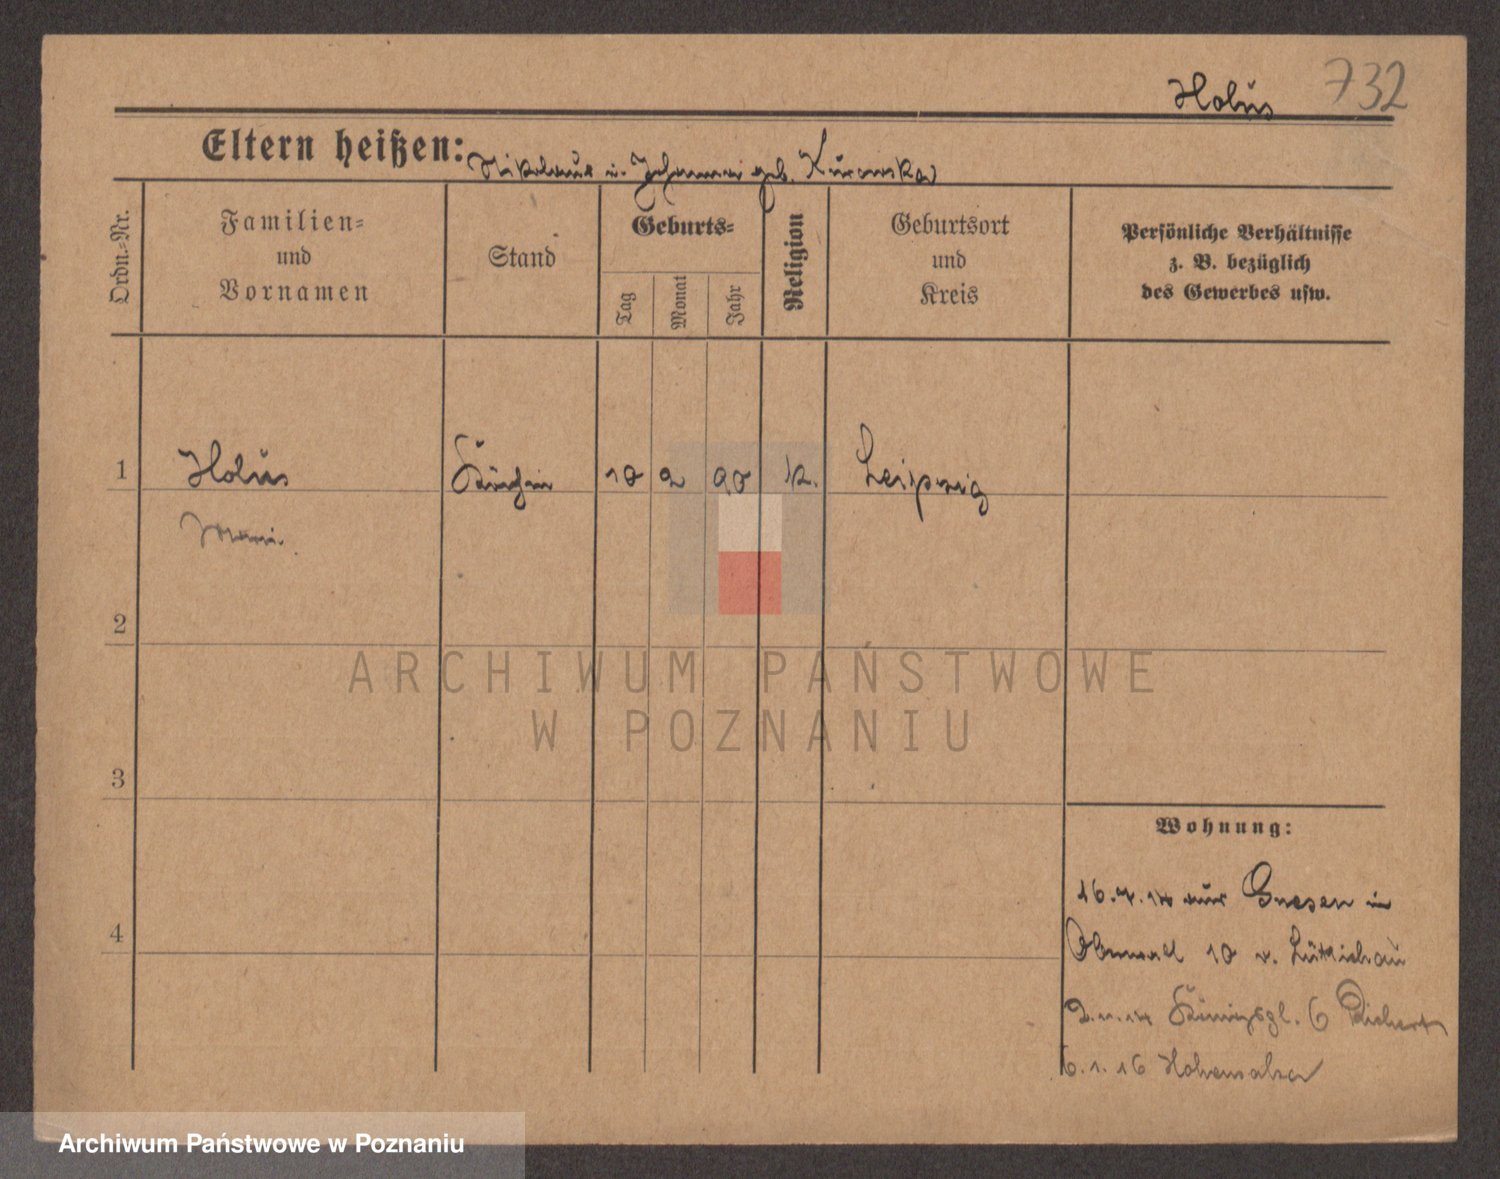 Holus 732
Eltern heißen: Nikolaus u. Johanna geb. Kurowska
Ordn.-Nr.
Familien-
und
Vornamen
Stand
Geburts-
Tag
Monat
Jahr
Religion
Geburtsort
und
Kreis
Persönliche Verhältnisse
z. B. bezüglich
des Gewerbes usw.
1 Holus Köchin 10 2 90 k. Leipzig
2
3
4
Wohnung:
16.7.14 aus Gnesen in
10 v. Lüttichau
Königspl. 6
6.1.16 Hohensalza
ARCHIWUM PAŃSTWOWE
W POZNANIU
Archiwum Państwowe w Poznaniu